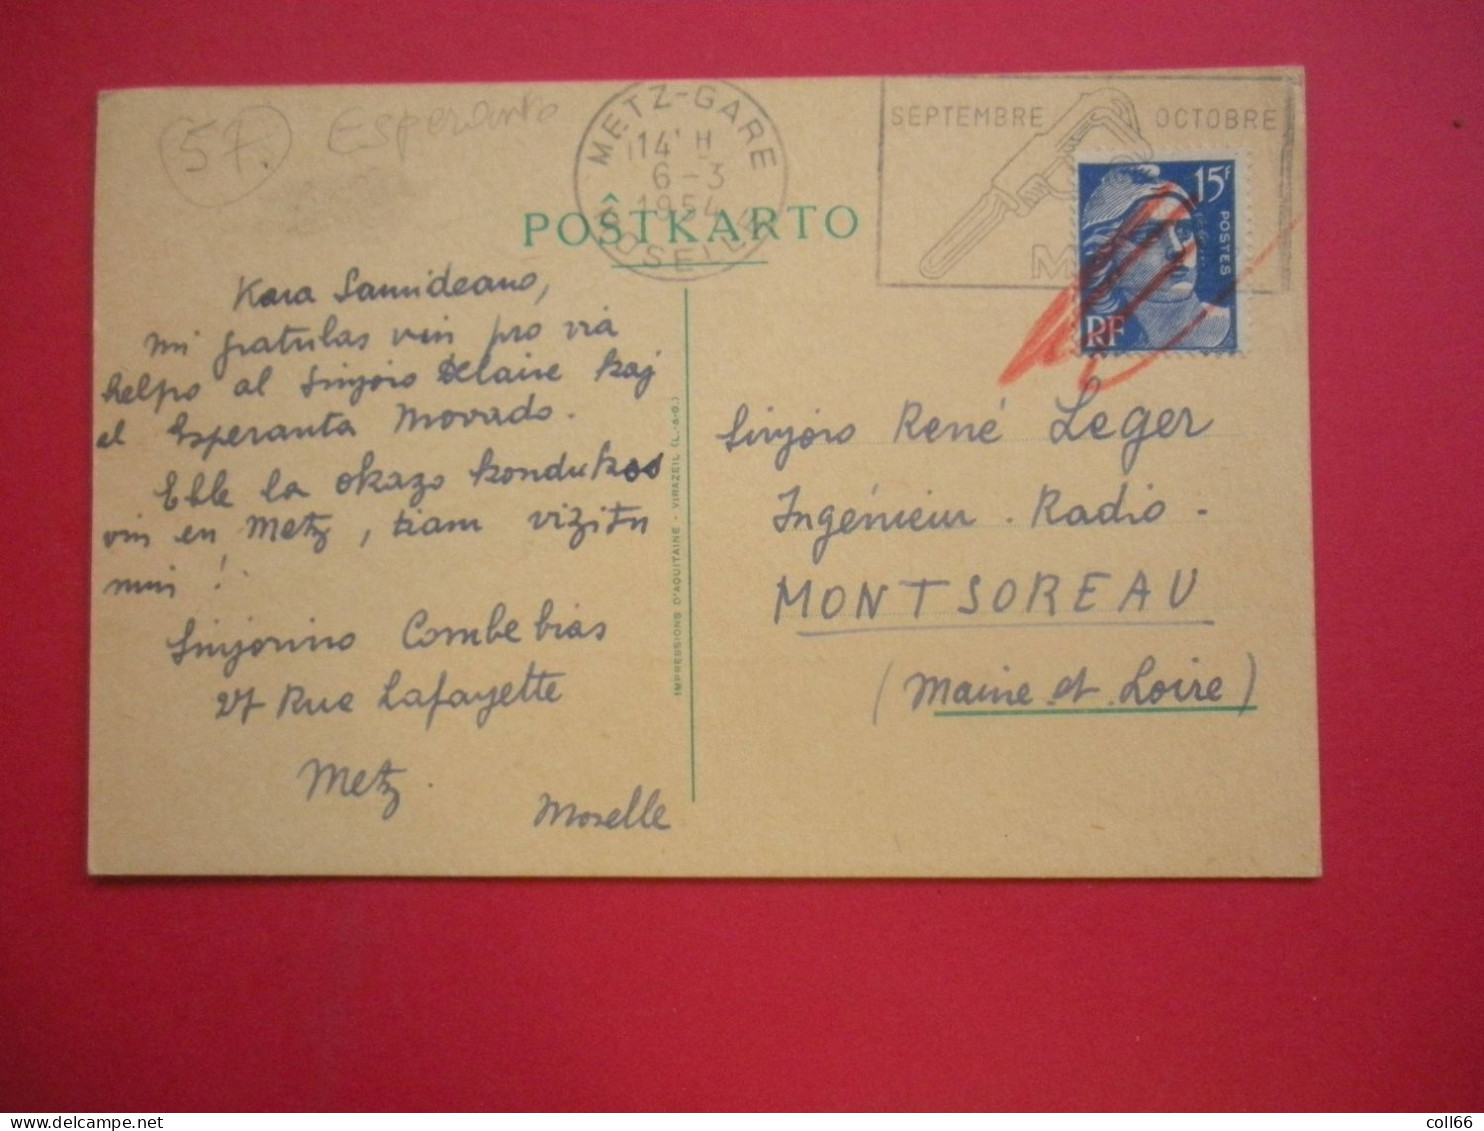 57. Esperanto
METZ-GARE
14 H
6-3
1954
MOSELLE
SEPTEMBRE OCTOBRE
M
15F
POSTES
RF
POŜTKARTO
Kara Samideano,
mi gratulas vin pro via
helpo al Sinjoro Delaire kaj
al Esperanta Movado.
Eble la okazo kondukos
vin en Metz, tiam vizitu
min !
Sinjorino Combebias
27 Rue Lafayette
Metz.
Moselle
IMPRESSIONS D'AQUITAINE - VIRAZEIL (L.-&-G.)
Sinjoro René Leger
Ingénieur. Radio.
MONTSOREAU
(Maine et Loire)
coll66